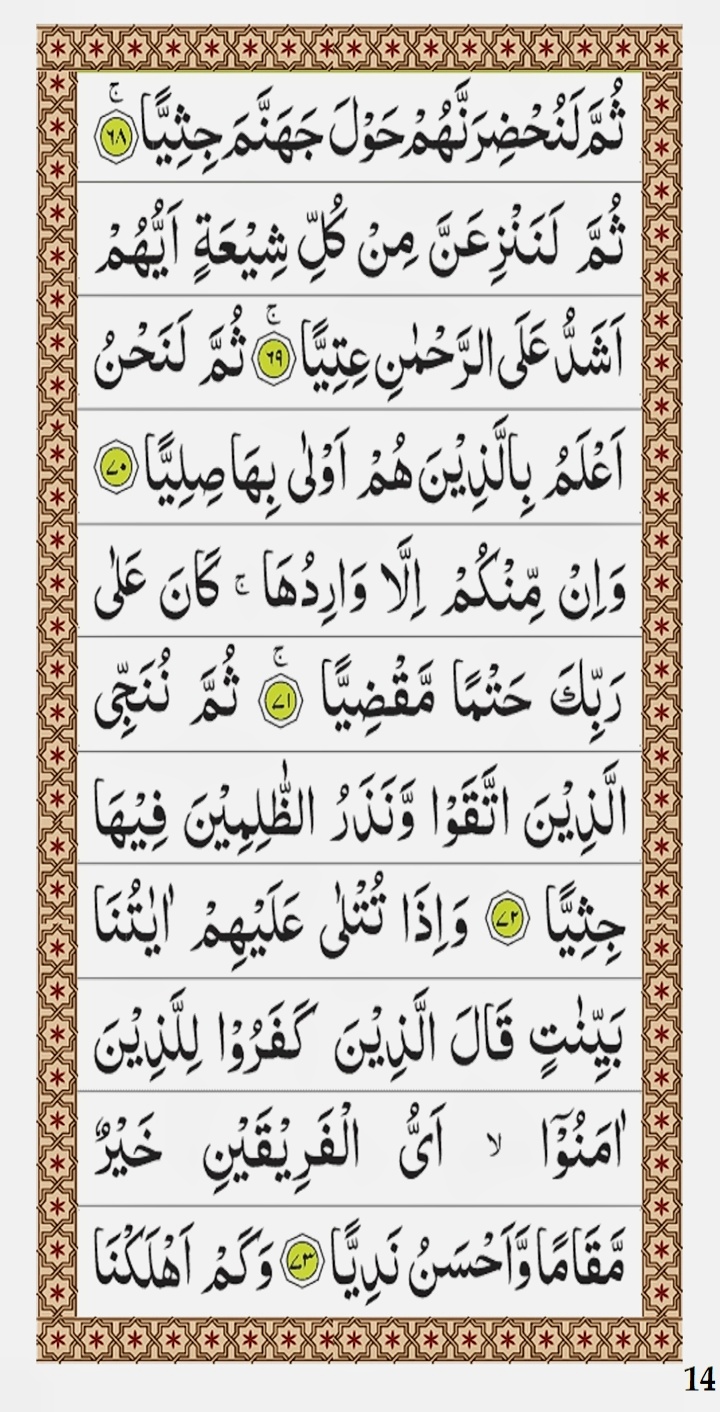 ثُمَّ لَنُحْضِرَنَّهُمْ حَوْلَ جَهَنَّمَ جِثِيًّا ۚ ﴿٦٨﴾
ثُمَّ لَنَنْزِعَنَّ مِنْ كُلِّ شِيْعَةٍ اَيُّهُمْ
اَشَدُّ عَلَى الرَّحْمٰنِ عِتِيًّا ۚ ﴿٦٩﴾ ثُمَّ لَنَحْنُ
اَعْلَمُ بِالَّذِيْنَ هُمْ اَوْلٰى بِهَا صِلِيًّا ﴿٧٠﴾
وَاِنْ مِّنْكُمْ اِلَّا وَارِدُهَا ۚ كَانَ عَلٰى
رَبِّكَ حَتْمًا مَّقْضِيًّا ۚ ﴿٧١﴾ ثُمَّ نُنَجِّى
الَّذِيْنَ اتَّقَوْا وَّنَذَرُ الظّٰلِمِيْنَ فِيْهَا
جِثِيًّا ﴿٧٢﴾ وَاِذَا تُتْلٰى عَلَيْهِمْ اٰيٰتُنَا
بَيِّنٰتٍ قَالَ الَّذِيْنَ كَفَرُوْا لِلَّذِيْنَ
اٰمَنُوْٓا ۙ اَىُّ الْفَرِيْقَيْنِ خَيْرٌ
مَّقَامًا وَّاَحْسَنُ نَدِيًّا ﴿٧٣﴾ وَكَمْ اَهْلَكْنَا
14